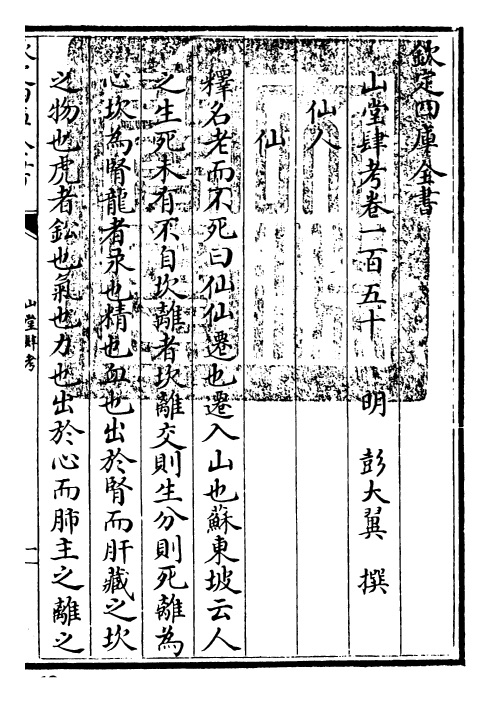 欽定四庫全書
山堂肆考卷一百五十 明 彭大翼 撰
仙人
仙
釋名老而不死曰仙仙遷也遷入山也蘇東坡云人
之生死未有不自坎離者坎離交則生分則死離為
心坎為腎龍者汞也精也血也出於腎而肝藏之坎
之物也虎者鈆也氣也力也出於心而肺主之離之
山堂肆考
一